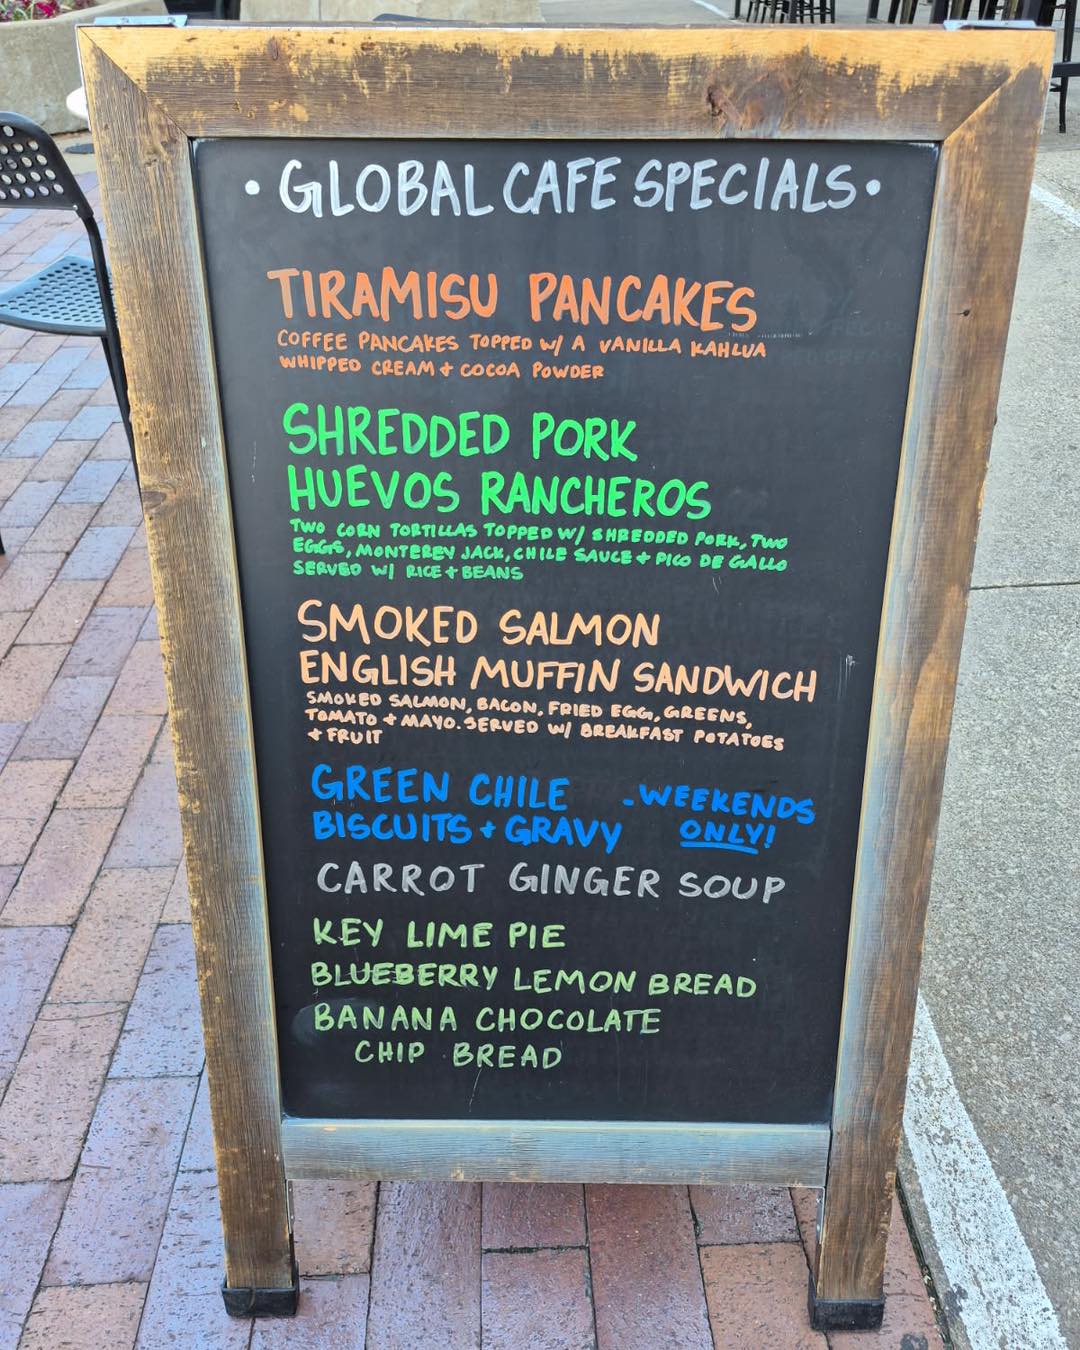 • GLOBAL CAFE SPECIALS •
TIRAMISU PANCAKES
COFFEE PANCAKES TOPPED W/ A VANILLA KAHLUA
WHIPPED CREAM + COCOA POWDER
SHREDDED PORK
HUEVOS RANCHEROS
TWO CORN TORTILLAS TOPPED W/ SHREDDED PORK, TWO
EGGS, MONTEREY JACK, CHILE SAUCE + PICO DE GALLO
SERVED W/ RICE + BEANS
SMOKED SALMON
ENGLISH MUFFIN SANDWICH
SMOKED SALMON, BACON, FRIED EGG, GREENS,
TOMATO + MAYO. SERVED W/ BREAKFAST POTATOES
+ FRUIT
GREEN CHILE - WEEKENDS
BISCUITS + GRAVY ONLY!
CARROT GINGER SOUP
KEY LIME PIE
BLUEBERRY LEMON BREAD
BANANA CHOCOLATE
CHIP BREAD